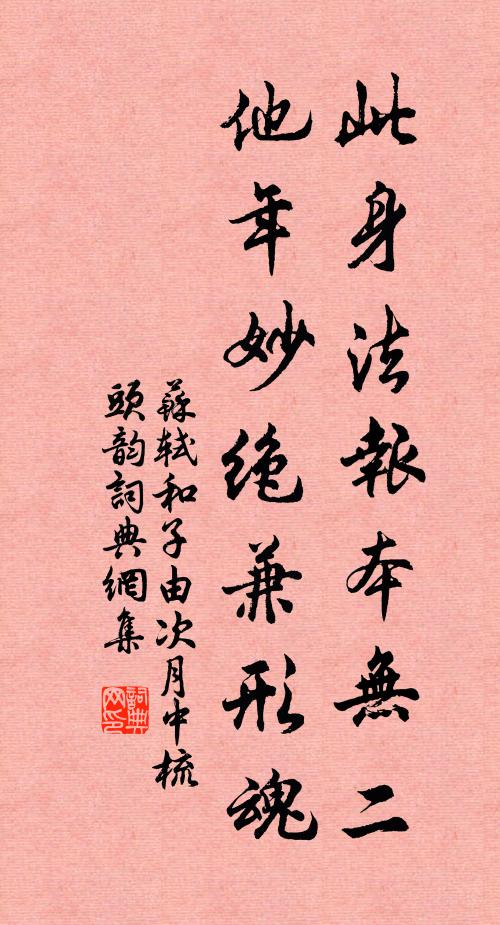 此身法報本無二
他年妙絕兼形魂
蘇軾和子由次月中梳
頭韵詞典網集
詞典
网印